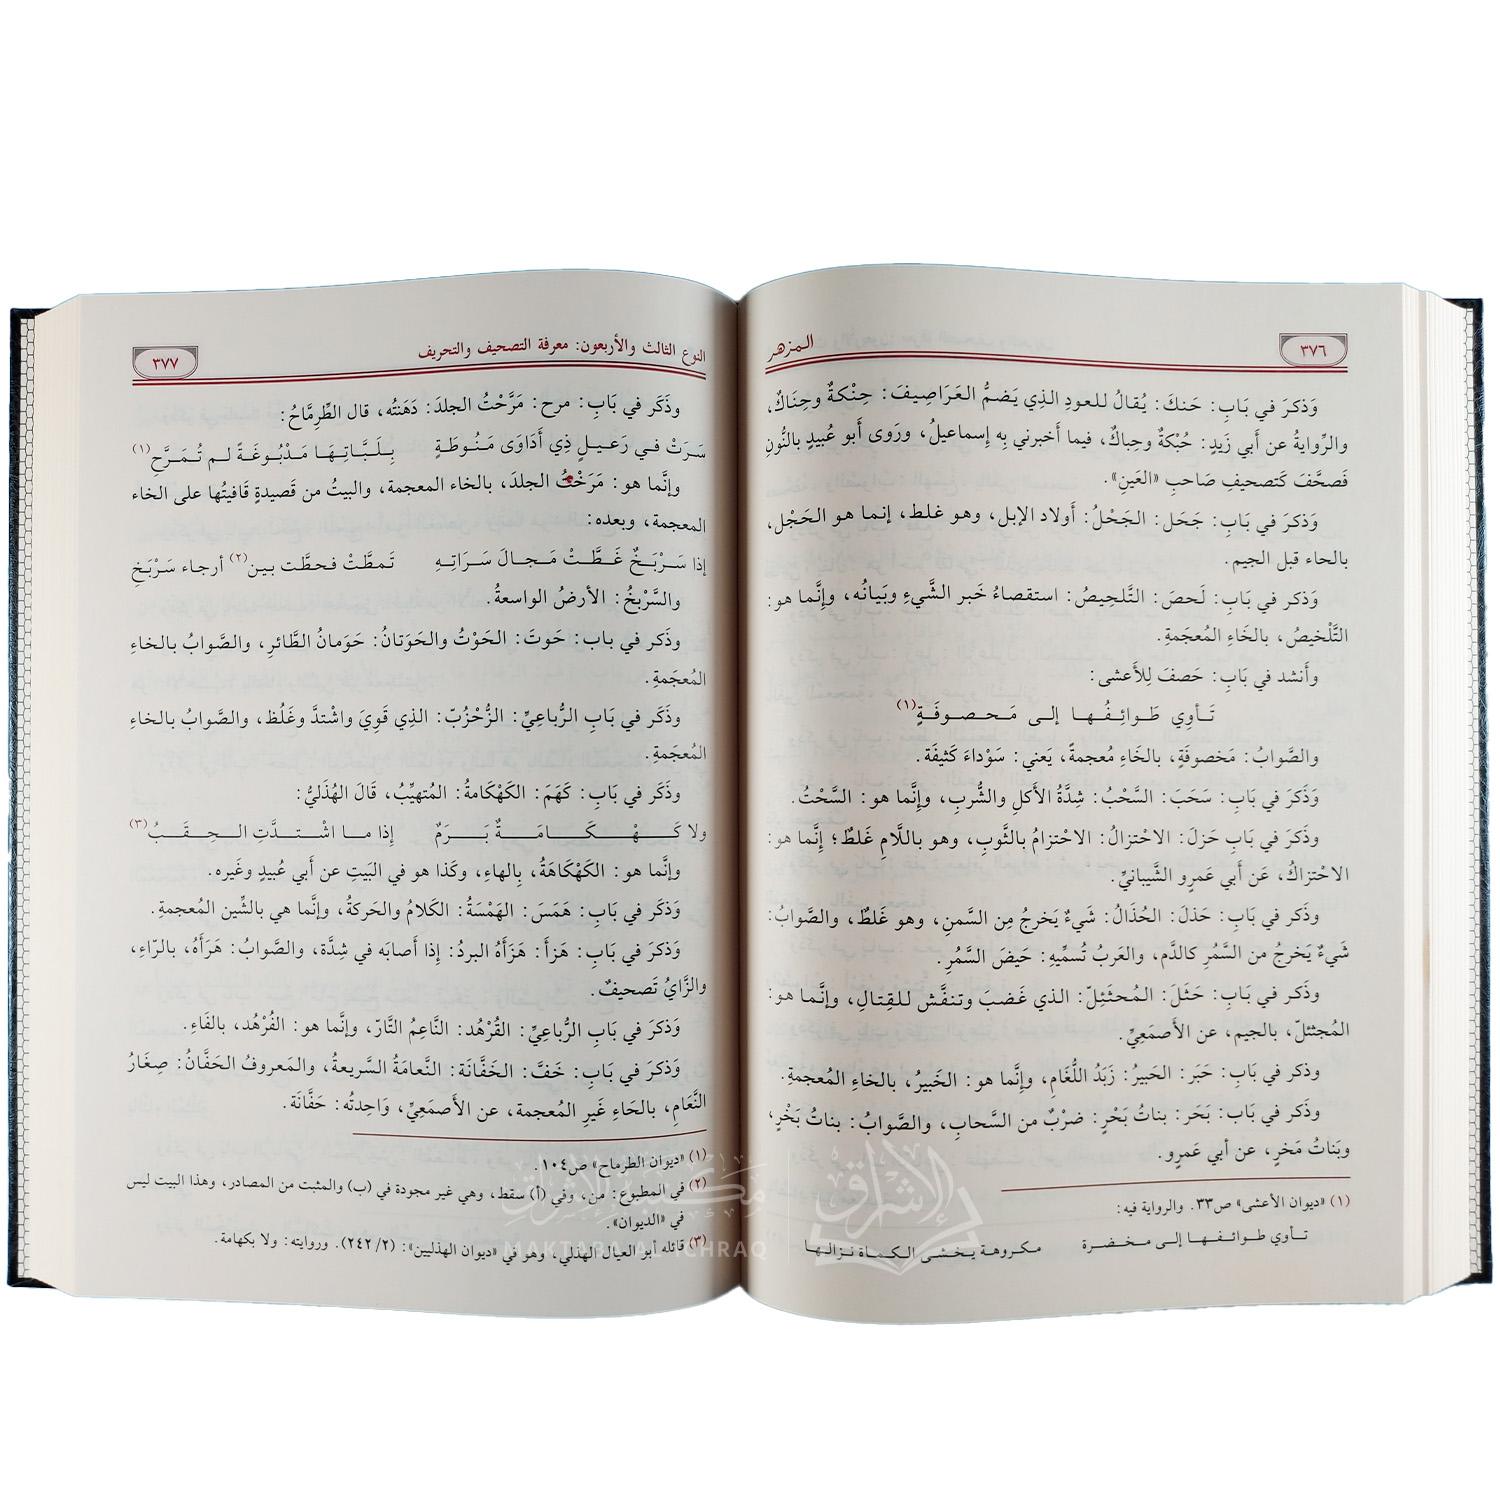 ٣٧٦
المزهر
وَذكرَ في بَابِ: حَنكَ: يُقالُ للعودِ الذِي يَضمُّ العَرَاصِيفَ: حِنْكةٌ وحِنَاكٌ،
والرِّوايةُ عن أَبي زَيدٍ: حُبْكةٌ وحِباكٌ، فيما أخبرني بِه إِسماعيلُ، ورَوى أَبو عُبيدٍ بالنُّونِ
فَصحَّفَ كَتصحيفِ صَاحبِ «العَينِ».
وَذكرَ في بَابِ: جَحَل: الجَحْلُ: أَولاد الإبل، وهو غلط، إنما هو الحَجْل،
بالحاء قبل الجيم.
وَذكرَ في بَابِ: لَحصَ: التَّلحِيصُ: استقصاءُ خَبر الشَّيءِ وبَيانُه، وإنَّما هو:
التَّلْخيصُ، بالخَاءِ المُعجَمةِ.
وأَنشد في بَابِ: حَصفَ لِلأَعشى:
تَـأوِي طَـوائِـفُـهـا إلى مَـحـصـوفَـةٍ (١)
والصَّوابُ: مَخصوفَةٍ، بالخَاءِ مُعجمةً، يَعني: سَوْداءَ كَثيفَة.
وَذَكرَ في بَابِ: سَحَبَ: السَّحْبُ: شِدَّةُ الأَكلِ والشُّربِ، وإِنَّما هو: السَّحْتُ.
وذَكرَ في بَابِ حَزلَ: الاحْتزالُ: الاحْتزامُ بالثَّوبِ، وهو باللَّامِ غَلطٌ؛ إنَّما هو:
الاحْتزاكُ، عَن أَبي عَمرٍو الشَّيبانيِّ.
وذَكر في بَابِ: حَذلَ: الحُذَالُ: شَيءٌ يَخرجُ مِن السَّمنِ، وهو غَلطٌ، والصَّوابُ:
شَيءٌ يَخرجُ من السَّمُرِ كالدَّم، والعَربُ تُسمِّيهِ: حَيضَ السَّمُرِ.
وذَكرَ في بَابِ: حَثَلَ: المُحثَئِلّ: الذي غَضبَ وتنفَّش للقِتالِ، وإنَّما هو:
المُجثئلّ، بالجيم، عن الأَصمَعِيِّ.
وذكر في بَابِ: حَبَر: الحَبيرُ: زَبَدُ اللُّغَامِ، وإنَّما هو: الخَبيرُ، بالخاءِ المُعجمةِ.
وذَكر في بَاب: بَحَر: بناتُ بَحْرٍ: ضرْبٌ من السَّحابِ، والصَّوابُ: بناتُ بَخْرٍ،
وبَناتُ مَخرٍ، عن أبي عَمرٍو.
(١) «ديوان الأعشى» ص٣٣. والرواية فيه:
تأوي طوائفها إلى مخضرة    مكروهة يخشى الكماة نزالها
النوع الثالث والأربعون: معرفة التصحيف والتحريف
٣٧٧
وذَكَر في بَابِ: مرح: مَرَّحْتُ الجلدَ: دَهَنتُه، قال الطِّرِمَّاحُ:
سَرَتْ فـي رَعـيـلٍ ذِي أَدَاوَى مَـنُـوطَةٍ    بِـلَـبَّاتِـهَـا مَـدْبُـوغَـةً لـم تُـمَـرَّحِ (١)
وإنَّما هو: مَرَخْتُ الجلدَ، بالخاء المعجمة، والبيتُ من قَصيدةٍ قَافيتُها على الخاء
المعجمة، وبعده:
إذا سَـرْبَـخٌ غَـطَّـتْ مَـجـالَ سَـرَاتِـهِ    تَـمطَّتْ فحطَّت بـين (٢) أرجاء سَرْبَخِ
والسَّرْبخُ: الأرضُ الواسعةُ.
وذَكر في باب: حَوتَ: الحَوْتُ والحَوَتانُ: حَوَمانُ الطَّائرِ، والصَّوابُ بالخاءِ
المُعجَمةِ.
وذَكَر في بَابِ الرُّباعِيِّ: الزُّحْزُبّ: الذي قَوِيَ واشتدَّ وغَلُظ، والصَّوابُ بالخاءِ
المُعجَمةِ.
وذَكَر في بَابِ: كَهَمَ: الكَهْكَامةُ: المُتهيِّبُ، قَالَ الهُذَليُّ:
ولا كَـــهْـــكَـــامَـــةٌ بَـــرَمٌ    إذا مـا اشْـتـدَّتِ الـحِـقَـبُ (٣)
وإنَّما هو: الكَهْكَاهَةُ، بِالهاءِ، وكَذا هو في البَيتِ عن أَبي عُبيدٍ وغَيره.
وَذَكرَ في بَابِ: هَمَسَ: الهَمْسَةُ: الكَلامُ والحَركةُ، وإنَّما هي بالشِّين المُعجمةِ.
وَذكرَ في بَابِ: هَزأَ: هَزَأَهُ البردُ: إذا أصابَه في شِدَّة، والصَّوابُ: هَرَأَهُ، بالرّاءِ،
والزَّايُ تَصحيفٌ.
وَذكرَ في بَابِ الرُّباعِيِّ: القُرْهُد: النَّاعِمُ التَّارّ، وإنَّما هو: الفُرْهُد، بالفَاءِ.
وَذَكرَ في بَابِ: خَفَّ: الخَفَّانَة: النَّعامَةُ السَّريعةُ، والمَعروف الحَفَّانُ: صِغَارُ
النَّعَامِ، بالحَاءِ غَيرِ المُعجمة، عن الأَصمَعِيِّ، وَاحِدتُه: حَفَّانَة.
(١) «ديوان الطرماح» ص١٠٤.
(٢) في المطبوع: من، وفي (أ) سقط، وهي غير مجودة في (ب) والمثبت من المصادر، وهذا البيت ليس
في «الديوان».
(٣) قائله أبو العيال الهذلي، وهو في «ديوان الهذليين»: (٢٤٢/٢). وروايته: ولا بكهامة.
مكتبة الإشراق
MAKTABA AL-ICHRAQ
الإشراق